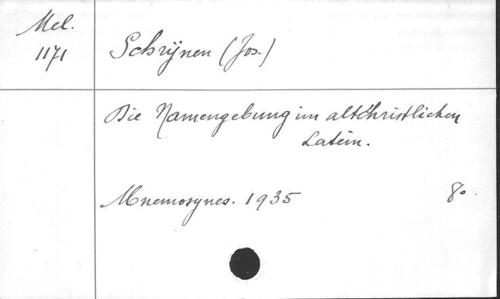 Mel.
1171
Schrijnen (Jos.)
Die Namengebung im altchristlichen
Latein.
Mnemosynes. 1935 8o